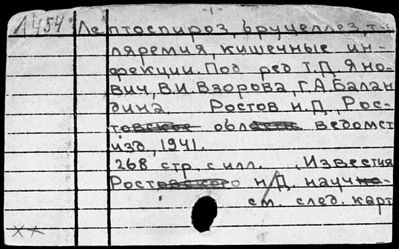 1454 Лептоспироз, бруцеллез, ту
ляремия, кишечные ин-
фекции. Под ред. Т.Д. Яно-
вич, В.И. Взорова, Г.А. Балан
дина. Ростов н.Д. Рос-
товское областн ведомст
изд, 1941.
268 стр. с илл. (Известия
Ростовского н/Д. научно-
см. след. карт
××